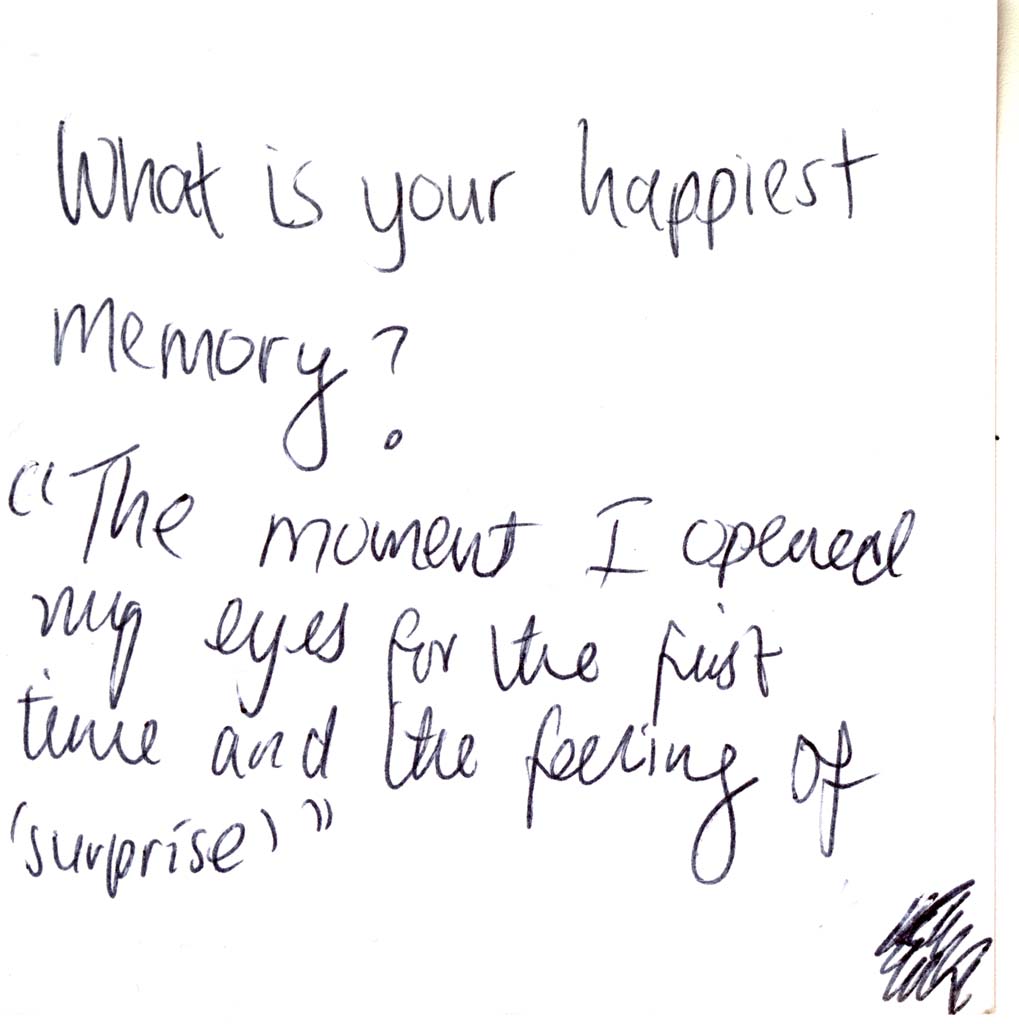 What is your happiest
memory?
"The moment I opened
my eyes for the first
time and the feeling of
'surprise'"